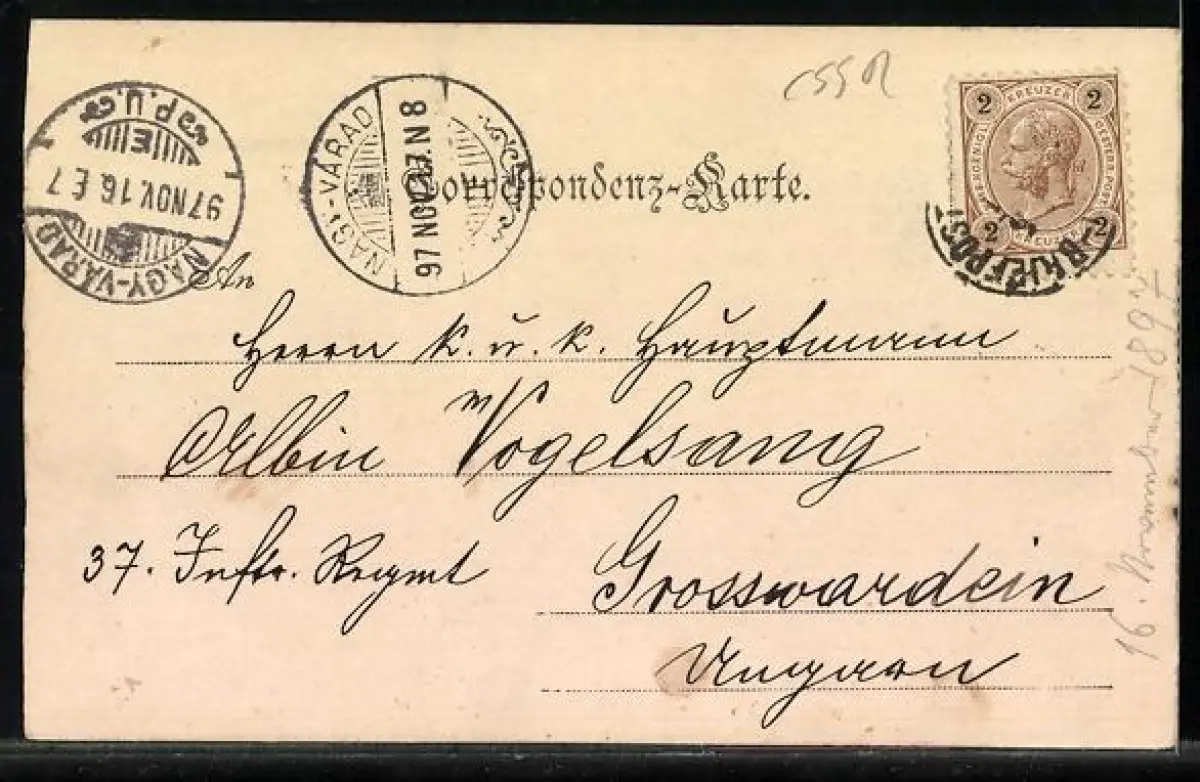 ČSSR
2 KREUZER 2
2 KREUZER 2
NAGY-VÁRAD
97 NOV. 16 E 7
P.U.
NAGY-VÁRAD
97 NOV. 17. N 8
Correspondenz-Karte.
An
Herrn k. u. k. Hauptmann
Albin Vogelsang
37. Inftr. Regmt
Grosswardein
Ungarn
16. November 1897